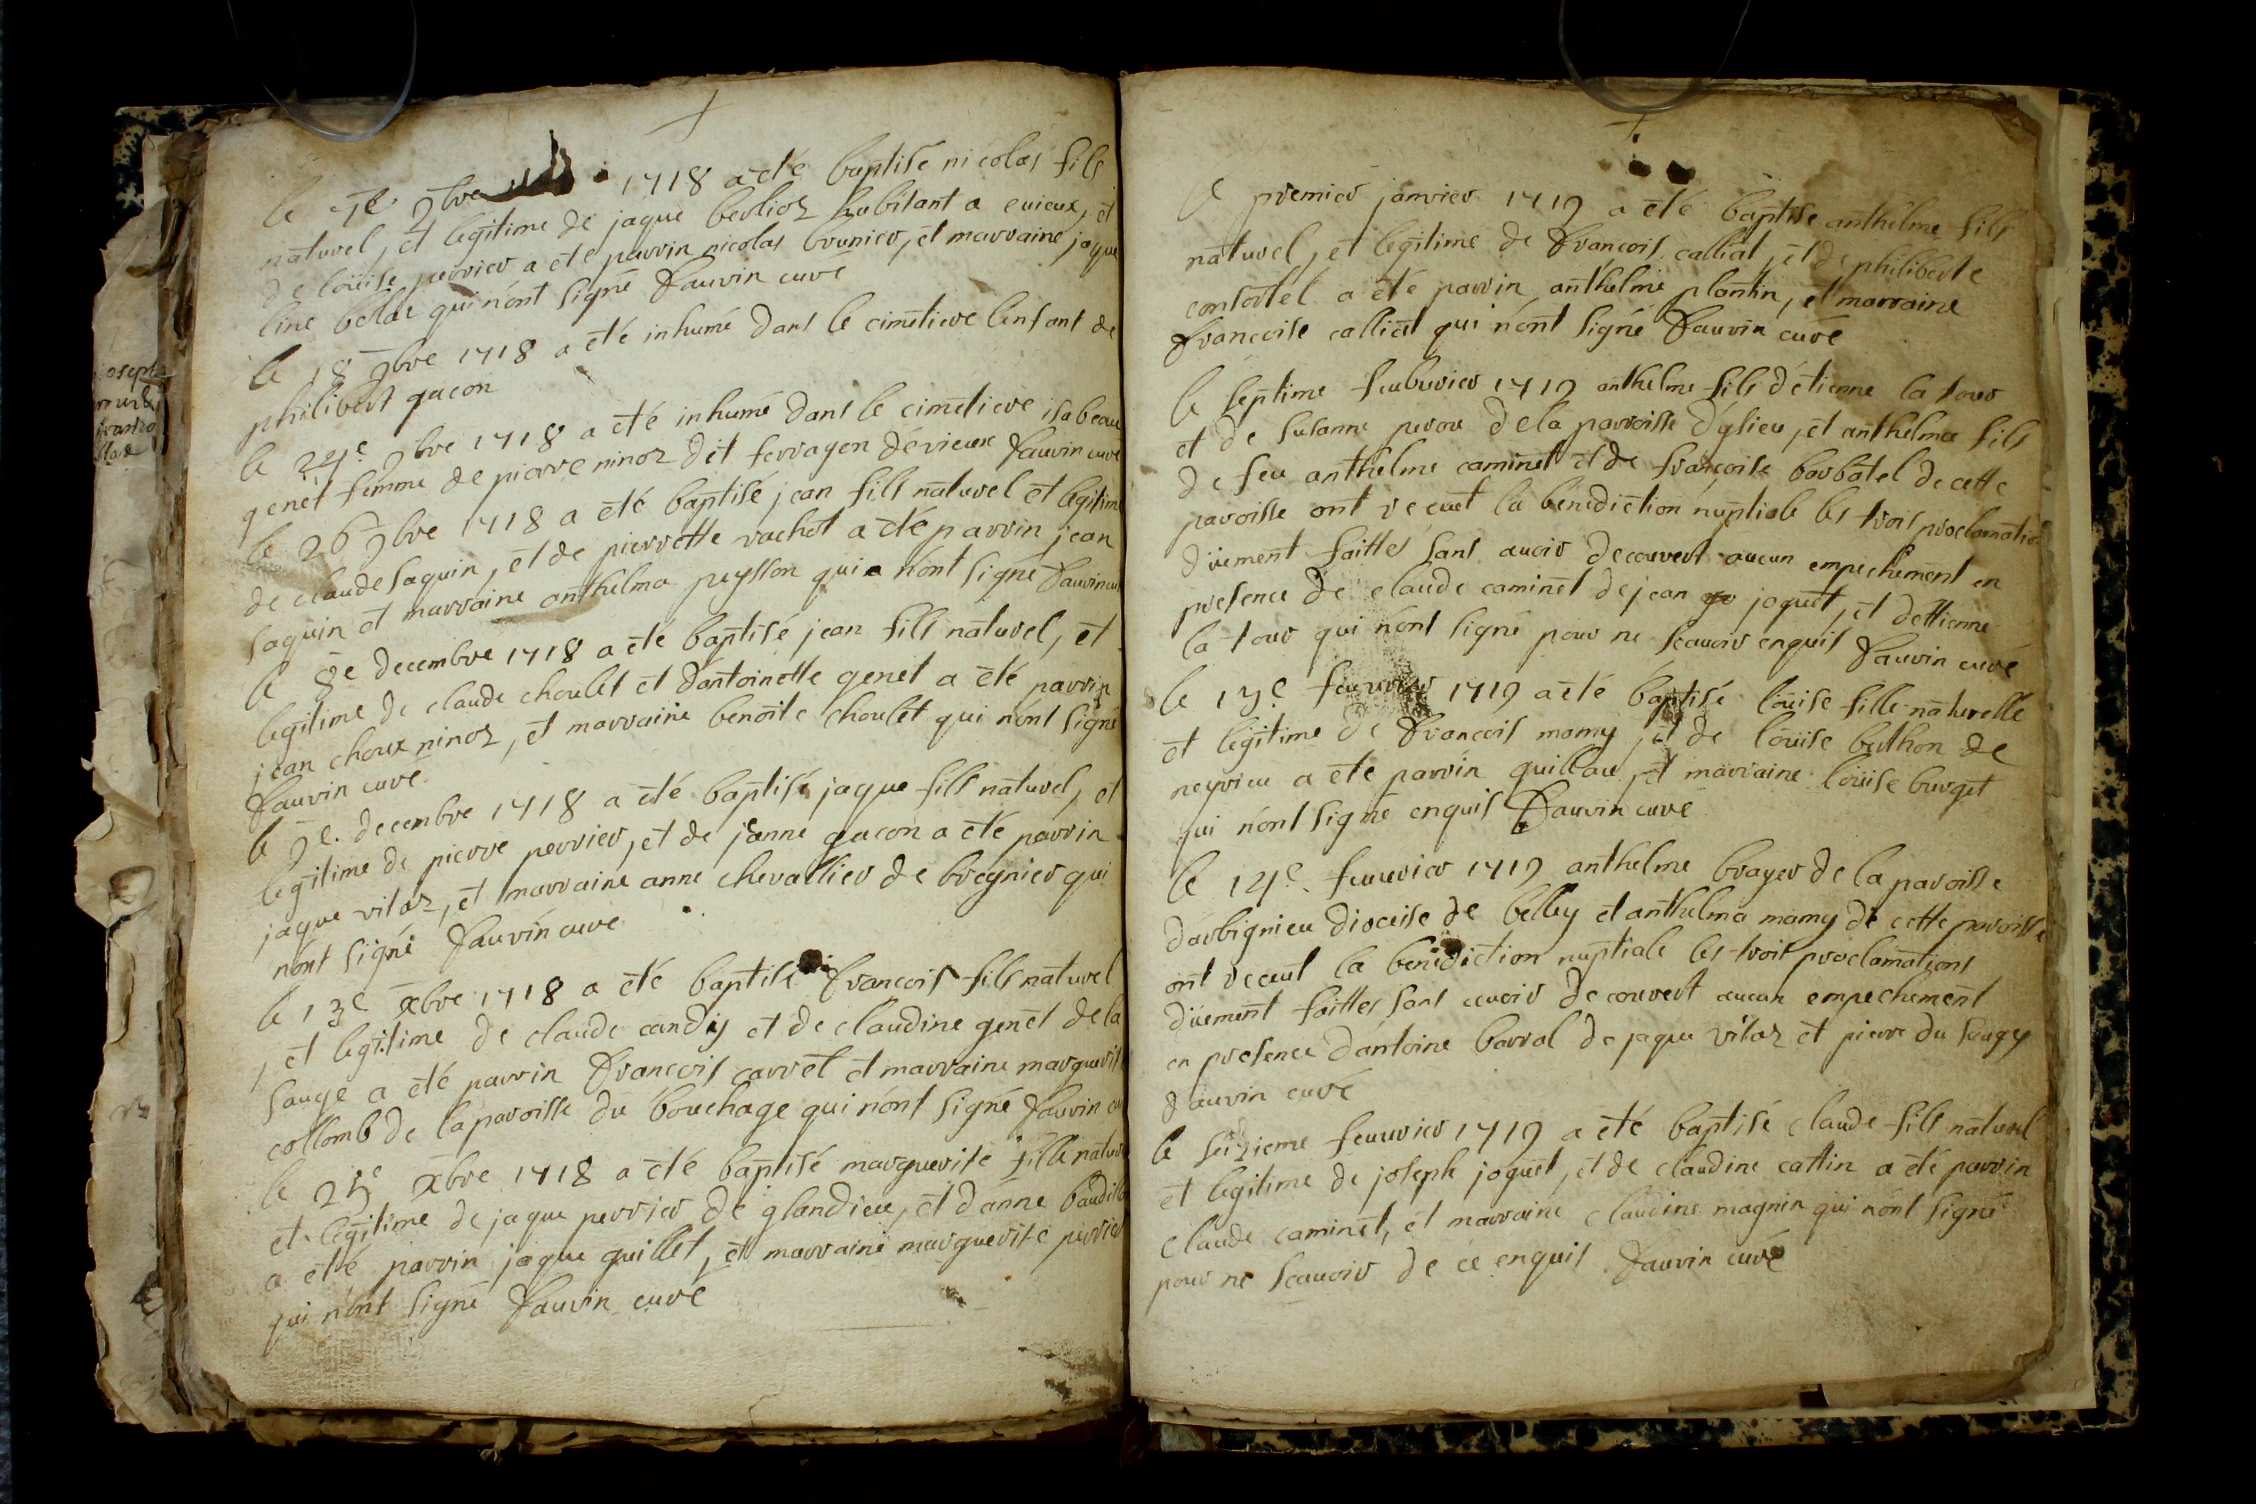 le 7e 9bre 1718 a èté baptisé nicolas fils
naturel, et legitime de jaque berlioz habitant a evieux, et
de loüise perrier a èté parrin nicolas brunier, et marraine jaque
line belae qui n'ont signé Fauvin curé
le 18 9bre 1718 a èté inhumé dans le cimetiere l'enfant de
philibert gacon
le 24e 9bre 1718 a èté inhumé dans le cimetiere isabeau
genet femme de pierre ninoz dit ferragon d'evieux Fauvin curé
le 26 9bre 1718 a èté baptisé jean fils naturel et legitime
de claude saquin, et de pierrette rachot a èté parrin jean
saquin et marraine anthelma peysson qui n'ont signé Fauvin cu
le 8e decembre 1718 a èté baptisé jean fils naturel, et
legitime de claude choulet et d'antoinette genet a èté parrin
jean choux ninoz, et marraine benoite choulet qui n'ont signé
Fauvin curé
le 9e. decembre 1718 a èté baptisé jaque fils naturel, et
legitime de pierre perrier, et de janne gacon a èté parrin
jaque vitoz, et marraine anne chevallier de bregnier qui
n'ont signé Fauvin curé
le 13e xbre 1718 a èté baptisé Francois fils naturel
, et legitime de claude candy et de claudine genet de la
sauge a èté parrin Francois carret et marraine marguerit
collomb de la paroisse du bouchage qui n'ont signé Fauvin cu
le 25e xbre 1718 a èté baptisé marguerite fille natur
et legitime de jaque perrier de glandieu, et d'anne baudi
a èté parrin jaque quillet, et marraine marguerite perrier
qui n'ont signé Fauvin curé
le premier janvier 1719 a èté baptise anthelme fils
naturel, et legitime de Francois calliat, et de philiberte
contostel a èté parrin anthelme plantin, et marraine
Francoise calliat qui n'ont signé Fauvin curé
le septime feubvrier 1719 anthelme fils d'etienne la tour
et de susanne perou de la parroisse d'glieu, et anthelma fille
de feu anthelme caminet et de francoise barbotel de cette
paroisse ont receut la benediction nuptiale les trois proclamatio
düement faittes sans avoir decouvert aucun empechement en
presence de claude caminet de jean joquet, et d'ettienne
la tour qui n'ont signé pour ne scavoir enquis Fauvin curé
le 13e feuvrier 1719 a èté baptisé loüise fille naturelle
et legitime de Francois mamy, et de loüise berthon de
neyrieu a èté parrin quillau, et marraine loüise burget
qui n'ont signé enquis Fauvin curé
le 14e. feuvrier 1719 anthelme brayer de la paroisse
d'arbignieu diocise de belley et anthelma mamy de cette paroisse
ont receut la benediction nuptiale les trois proclamations
düement faittes sans avoir decouvert aucun empechement
en presence d'antoine barral de jaque vitoz et pierre du sougey
Fauvin curé
le seizieme feuvrier 1719 a èté baptisé claude fils naturel
et legitime de joseph joquet, et de claudine cattin a èté parrin
claude caminet, et marraine claudine magnin qui n'ont signé
pour ne scavoir de ce enquis Fauvin curé